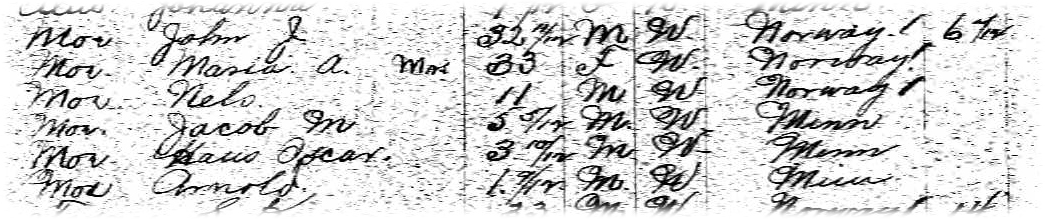 Moe John J 32 M W Norway 6
Moe Maria A. Moe 33 F W Norway
Moe Nels 11 M W Norway
Moe Jacob M 5 M W Minn
Moe Hans Oscar. 3 10/12 M W Minn
Moe Arnold 1 M W Minn